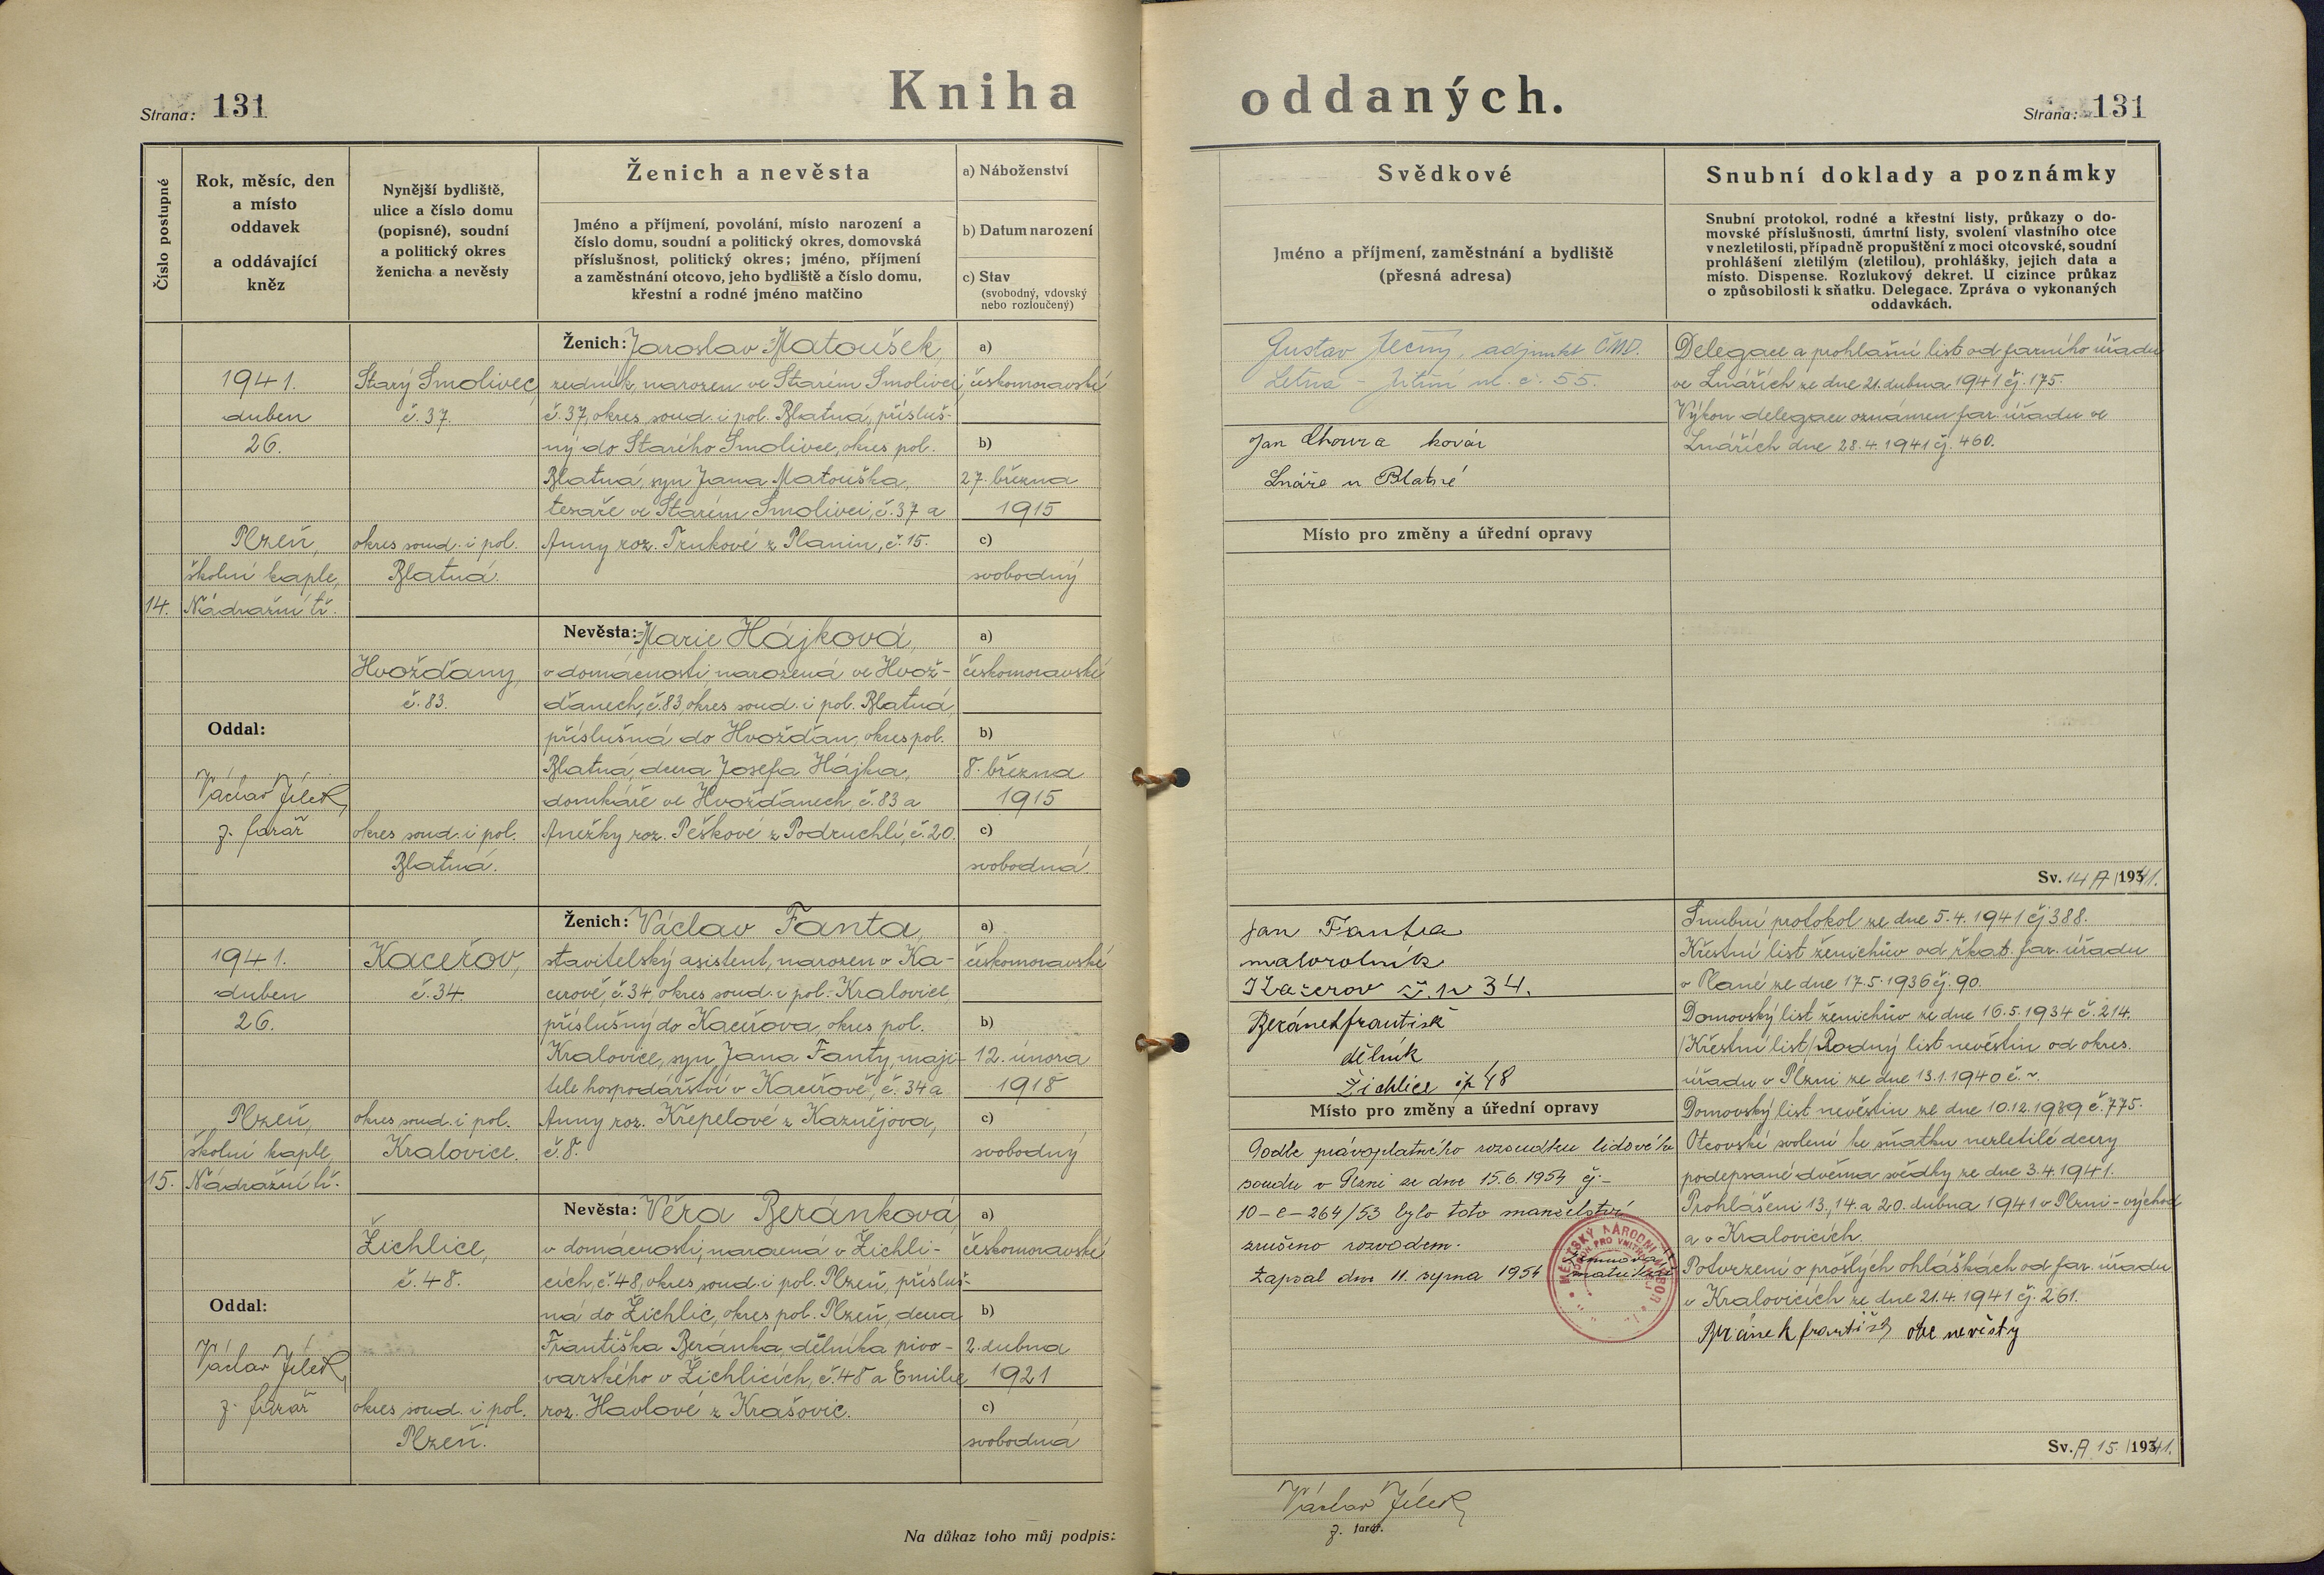 Kniha oddaných.
Strana: 131
Strana: 131
Číslo postupné
Rok, měsíc, den
a místo
oddavek
a oddávající
kněz
Nynější bydliště,
ulice a číslo domu
(popisné), soudní
a politický okres
ženicha a nevěsty
Ženich a nevěsta
Jméno a příjmení, povolání, místo narození a
číslo domu, soudní a politický okres, domovská
příslušnost, politický okres; jméno, příjmení
a zaměstnání otcovo, jeho bydliště a číslo domu,
křestní a rodné jméno matčino
a) Náboženství
b) Datum narození
c) Stav
(svobodný, vdovský
nebo rozloučený)
Svědkové
Jméno a příjmení, zaměstnání a bydliště
(přesná adresa)
Snubní doklady a poznámky
Snubní protokol, rodné a křestní listy, průkazy o do-
movské příslušnosti, úmrtní listy, svolení vlastního otce
v nezletilosti, případně propuštění z moci otcovské, soudní
prohlášení zletilým (zletilou), prohlášky, jejich data a
místo. Dispense. Rozlukový dekret. U cizince průkaz
o způsobilosti k sňatku. Delegace. Zpráva o vykonaných
oddavkách.
14.
1941.
duben
26.
Plzeň,
školní kaple,
Nádražní tř.
Oddal:
Václav Jílek,
f. farář
Starý Smolivec,
č. 37.
okres soud. i pol.
Blatná.
Ženich: Jaroslav Matoušek,
zedník, narozen ve Starém Smolivci,
č. 37, okres soud. i pol. Blatná, přísluš-
ný do Starého Smolivce, okres pol.
Blatná, syn Jana Matouška,
tesaře ve Starém Smolivci, č. 37 a
Anny roz. Trnkové z Planin, č. 15.
a)
českomoravské
b)
27. března
1915
c)
svobodný
Hvožďany,
č. 83.
okres soud. i pol.
Blatná.
Nevěsta: Marie Hájková,
v domácnosti narozená ve Hvož-
ďanech, č. 83, okres soud. i pol. Blatná,
příslušná do Hvožďan, okres pol.
Blatná, dcera Josefa Hájka,
domkáře ve Hvožďanech, č. 83 a
Anežky roz. Peškové z Podruhlí, č. 20.
a)
českomoravské
b)
8. března
1915
c)
svobodná.
Gustav Ječný, adjunkt ČMD.
Letná - Jitřní ul. č. 55.
Jan Choura kovář
Lnáře u Blatné
Místo pro změny a úřední opravy
Delegace a prohlašní list od farního úřadu
ve Lnářích ze dne 21. dubna 1941 čj. 175.
Výkon delegace oznámen far. úřadu ve
Lnářích dne 28. 4. 1941 čj. 460.
Sv. 14 A/193 41.
15.
1941.
duben
26.
Plzeň,
školní kaple,
Nádražní tř.
Oddal:
Václav Jílek,
f. farář
Kaceřov,
č. 34.
okres soud. i pol.
Kralovice.
Ženich: Václav Fanta,
stavitelský asistent, narozen v Ka-
ceřově, č. 34, okres soud. i pol. Kralovice,
příslušný do Kaceřova, okres pol.
Kralovice, syn Jana Fanty, maji-
tele hospodářství v Kaceřově, č. 34 a
Anny roz. Křepelové z Kaznějova,
č. 8.
a)
českomoravské
b)
12. února
1918
c)
svobodný
Žichlice,
č. 48.
okres soud. i pol.
Plzeň.
Nevěsta: Věra Beránková,
v domácnosti, narozená v Žichli-
cích, č. 48, okres soud. i pol. Plzeň, přísluš-
ná do Žichlic, okres pol. Plzeň, dcera
Františka Beránka, dělníka pivo-
varského v Žichlicích, č. 48 a Emilie
roz. Havlové z Krašovic.
a)
českomoravské
b)
2. dubna
1921
c)
svobodná
Jan Fanta
malorolník
Kaceřov 34.
Beránek František
dělník
Žichlice čp 48
Místo pro změny a úřední opravy
Podle právoplatného rozsudku lidového
soudu v Plzni ze dne 15. 6. 1954 čj.-
10-C-264/53 bylo toto manželství
zrušeno rozvodem.
Zapsal dne 11. srpna 1954
MĚSTSKÝ NÁRODNÍ VÝBOR
Snubní protokol ze dne 5. 4. 1941 čj 388.
Křestní list ženichův od řkat. far. úřadu
v Plané ze dne 17. 5. 1936 čj. 90.
Domovský list ženichův ze dne 16. 5. 1934 č. 214.
/Křestní list/ Rodný list nevěstin od okres.
úřadu v Plzni ze dne 13. 1. 1940 č. ~.
Domovský list nevěstin ze dne 10. 12. 1939 č. 775.
Otcovské svolení ke sňatku nezletilé dcery
podepsané dvěma svědky ze dne 3. 4. 1941.
Prohlášeni 13., 14. a 20. dubna 1941 v Plzni-východ
a v Kralovicích.
Potvrzení o prošlých ohláškách od far. úřadu
v Kralovicích ze dne 21. 4. 1941 čj. 261.
Beránek František otec nevěsty
Sv. A 15. /193 41.
Na důkaz toho můj podpis:
Václav Jílek,
f. farář.